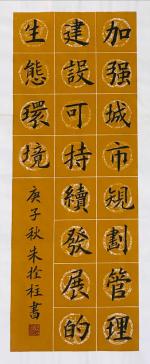 加强城市規劃管理
建設可持續發展的
生態環境
庚子秋朱拴柱書